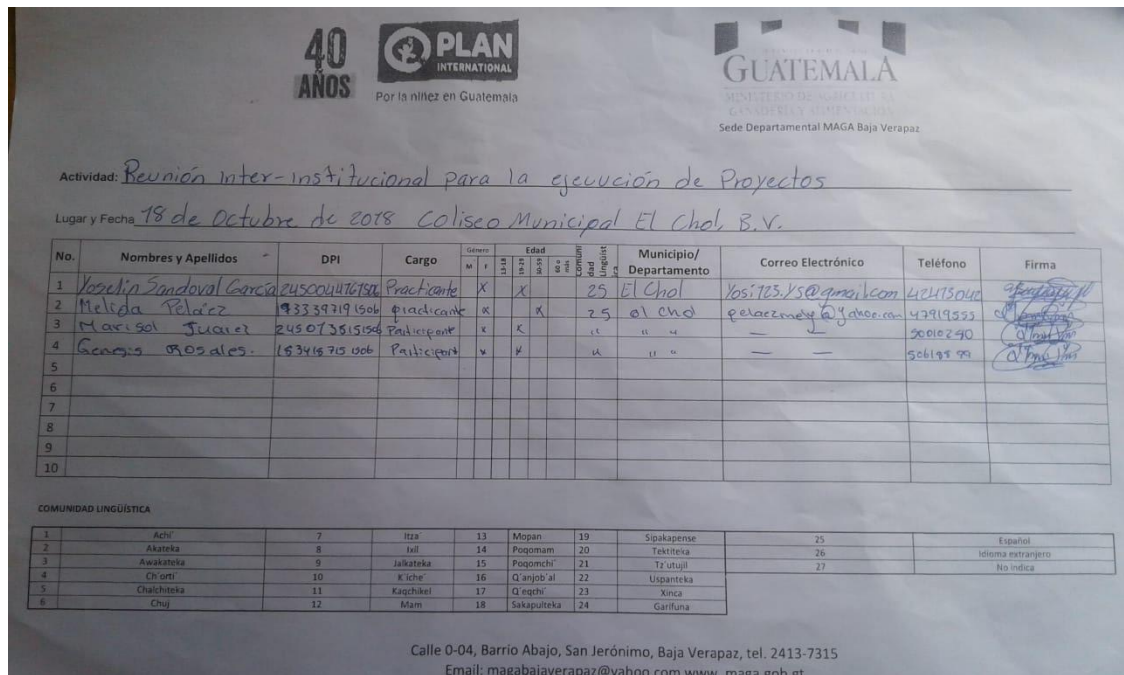 40 AÑOS
PLAN INTERNATIONAL
Por la niñez en Guatemala
GUATEMALA
MINISTERIO DE AGRICULTURA,
GANADERÍA Y ALIMENTACIÓN
Sede Departamental MAGA Baja Verapaz
Actividad: Reunión Inter-institucional para la ejecución de Proyectos
Lugar y Fecha 18 de Octubre de 2018 Coliseo Municipal El Chol, B.V.
No. Nombres y Apellidos DPI Cargo Género Edad Comunidad Lingüística Municipio/Departamento Correo Electrónico Teléfono Firma
M F 13-18 19-29 30-59 60 o más
1 Yoselin Sandoval García Practicante X X 25 El Chol Yosi125.YS@gmail.com 42415042
2 Melida Peláez 1933397191506 practicante x x 25 el chol 47919555
3 Marisol Juarez Participante x x " " " — — 50010290
4 Genesis Rosales. Participant x x " " " — —
5
6
7
8
9
10
COMUNIDAD LINGÜÍSTICA
1 Achi' 7 Itza' 13 Mopan 19 Sipakapense 25 Español
2 Akateka 8 Ixil 14 Poqomam 20 Tektiteka 26 Idioma extranjero
3 Awakateka 9 Jalkateka 15 Poqomchi' 21 Tz'utujil 27 No indica
4 Ch'orti' 10 K'iche' 16 Q'anjob'al 22 Uspanteka
5 Chalchiteka 11 Kaqchikel 17 Q'eqchi' 23 Xinca
6 Chuj 12 Mam 18 Sakapulteka 24 Garifuna
Calle 0-04, Barrio Abajo, San Jerónimo, Baja Verapaz, tel. 2413-7315
Email: magabajaverapaz@yahoo.com www. maga.gob.gt